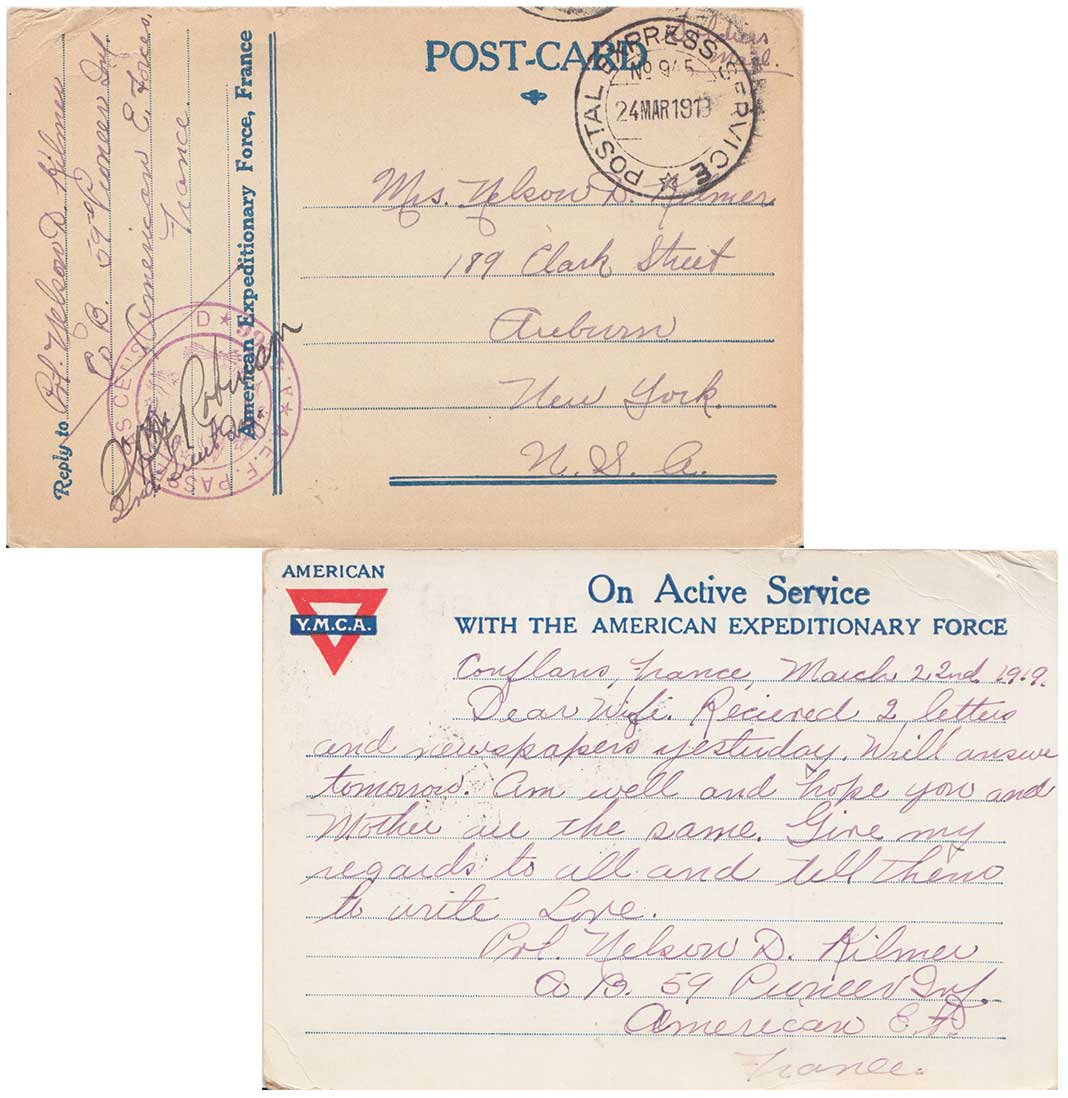 POST-CARD
Soldiers
Mail.
POSTAL EXPRESS SERVICE
No 945
24 MAR 1919
Mrs. Nelson D. Kilmer
189 Clark Street
Auburn
New York.
U. S. A.
Reply to Pvt. Nelson D. Kilmer
Co B. 59th Pioneer Inf.
American E. Forces.
France.
American Expeditionary Force, France
A.E.F. PASSED AS CENSORED
Robinson
2nd Lieut
AMERICAN
Y.M.C.A.
On Active Service
WITH THE AMERICAN EXPEDITIONARY FORCE
Conflans, France, March 22nd. 1919.
Dear Wife. Recieved 2 letters
and newspapers yesterday. Will answer
tomorrow. Am well and hope you and
Mother are the same. Give my
regards to all and tell them
to write Love.
Pvt. Nelson D. Kilmer
Co B. 59 Pioneer Inf.
American E. F.
France.